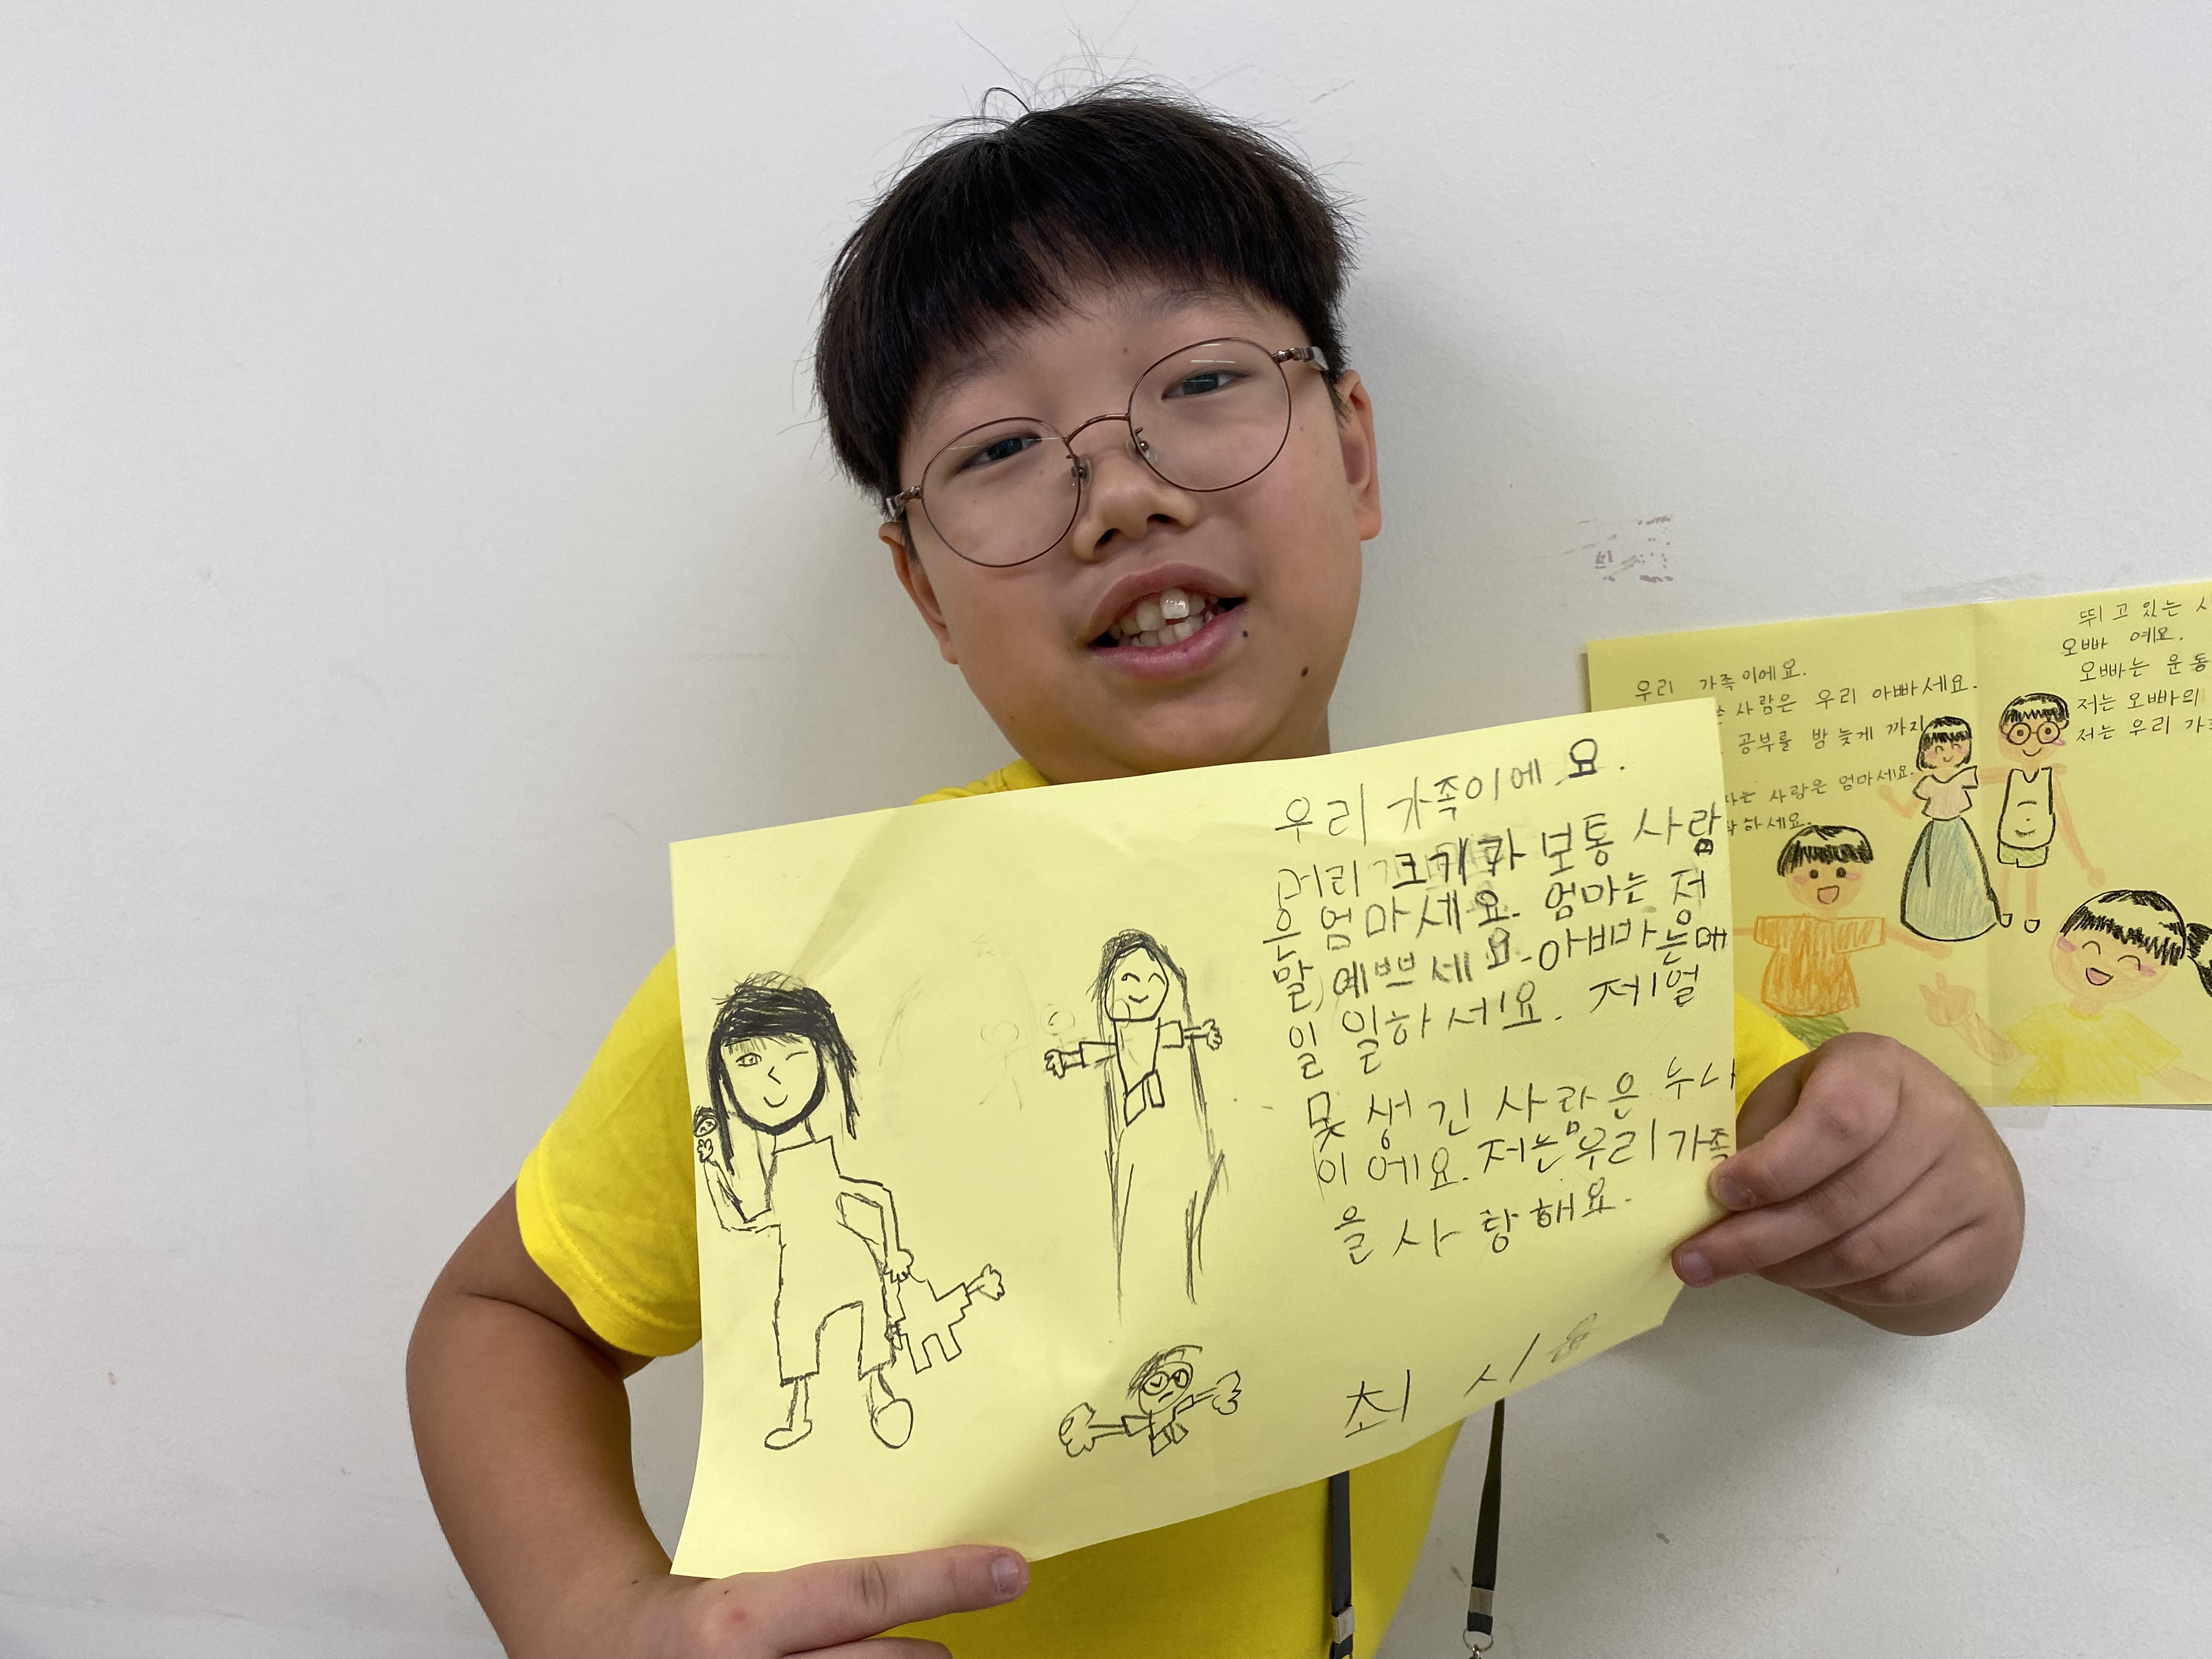 우리 가족이에요.
머리 크키가 보통 사람
은 엄마세요. 엄마는 저
말 예쁘세요. 아빠마는매
일 일하세요. 제일
못 생긴 사람은 누나
이에요. 저는 우리 가족
을 사랑해요.
최 시
우리 가족이에요.
사람은 우리 아빠세요.
공부를 밤 늦게 까지
사람은 엄마세요.
하세요.
뛰고 있는
오빠 예요.
오빠는 운동
저는 오빠의
저는 우리